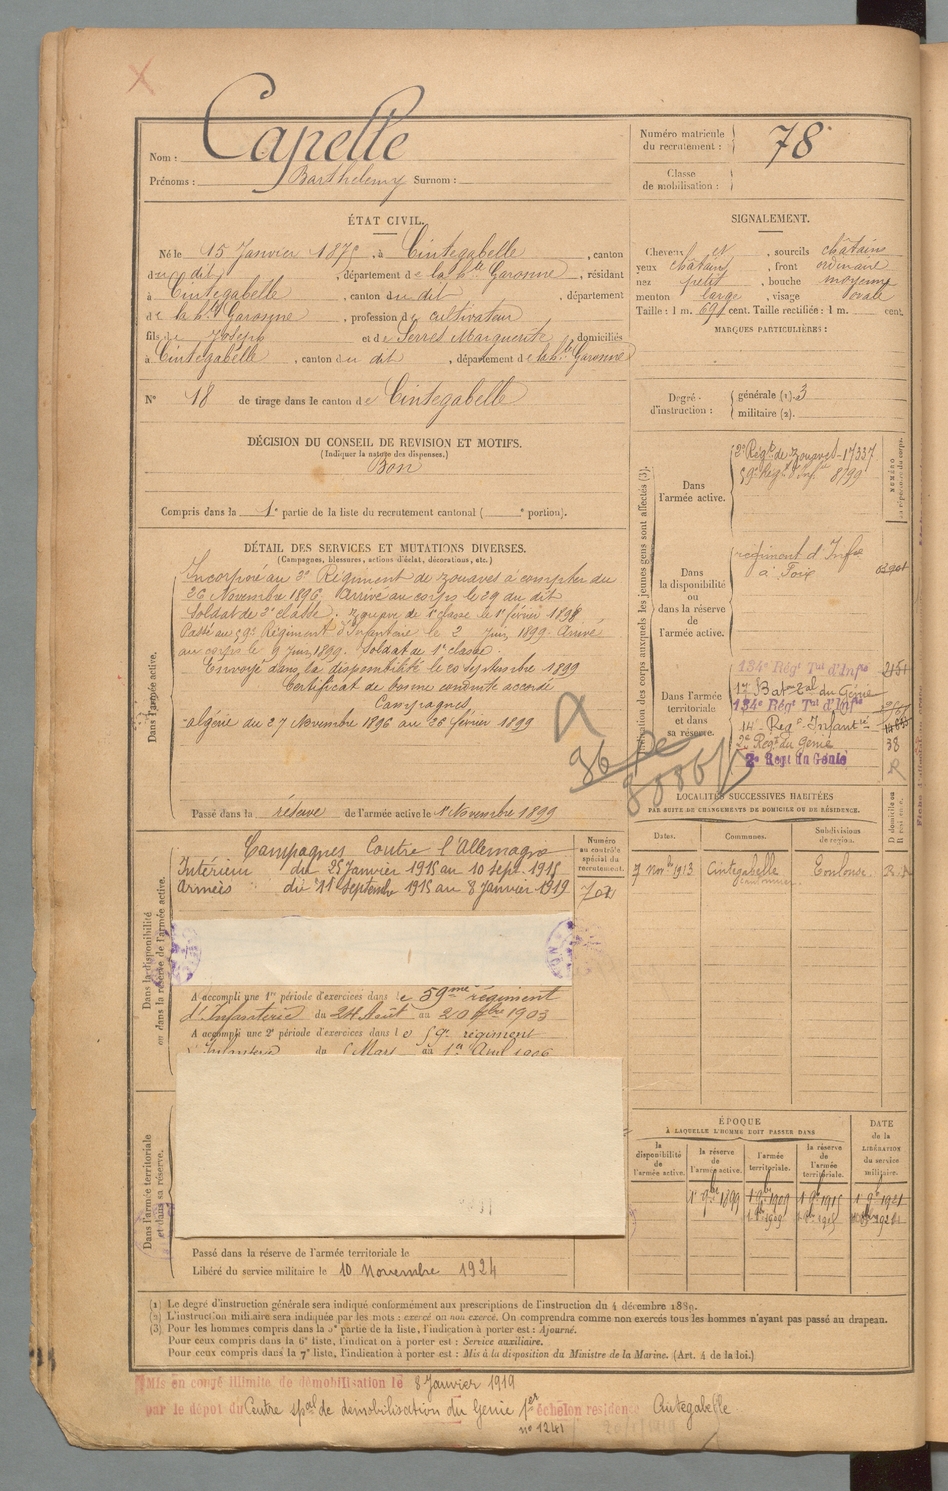 Nom : Capelle
Prénoms : Barthelemy Surnom :
Numéro matricule du recrutement : 78
Classe de mobilisation :
ÉTAT CIVIL.
Né le 15 Janvier 1875, à Cintegabelle, canton
du dit, département de la hte Garonne, résidant
à Cintegabelle, canton du dit, département
de la hte Garonne, profession de cultivateur
fils de Joseph et de Serres Marguerite, domiciliés
à Cintegabelle, canton du dit, département de la hte Garonne
N° 18 de tirage dans le canton de Cintegabelle
SIGNALEMENT.
Cheveux et, sourcils châtains
yeux châtains, front ordinaire
nez petit, bouche moyenne
menton large, visage ovale
Taille : 1 m. 69 cent. Taille rectifiée : 1 m. cent.
MARQUES PARTICULIÈRES :
Degré d'instruction : générale (1). 3
militaire (2).
DÉCISION DU CONSEIL DE REVISION ET MOTIFS.
(Indiquer la nature des dispenses.)
Bon
Compris dans la 1e partie de la liste du recrutement cantonal ( e portion).
DÉTAIL DES SERVICES ET MUTATIONS DIVERSES.
(Campagnes, blessures, actions d'éclat, décorations, etc.)
Dans l'armée active.
Incorporé au 3e Régiment de zouaves à compter du
26 Novembre 1896, Arrivé au corps le 29 du dit
soldat de 2e classe. zouave de 1e classe le 1er février 1898
Passé au 59e Régiment d'Infanterie le 2 Juin 1899. Arrivé
au corps le 9 Juin 1899. Soldat de 1e classe.
Envoyé dans la disponibilité le 20 Septembre 1899
Certificat de bonne conduite accordé
Campagnes
algérie du 27 Novembre 1896 au 26 février 1899
Passé dans la réserve de l'armée active le 1er Novembre 1899
Indication des corps auxquels les jeunes gens sont affectés (3).
Dans l'armée active.
Régt de zouaves - 17337
59e Régt d'Inf 8799
Dans la disponibilité ou dans la réserve de l'armée active.
régiment d'Infie
à Foix
Dans l'armée territoriale et dans sa réserve.
134e Régt Tal d'Infie
17 Baton Tal du Génie
134e Régt Tal d'Infie
14e Régt Infanterie
2e Regt du Génie 38
2e Regt du Génie
LOCALITÉS SUCCESSIVES HABITÉES
PAR SUITE DE CHANGEMENTS DE DOMICILE OU DE RÉSIDENCE.
Dates. Communes. Subdivisions de région. D domicile ou R résidence.
7 novbre 1913 Cintegabelle Toulouse R
Dans la disponibilité ou dans la réserve de l'armée active.
Campagnes Contre l'Allemagne
Intérieur du 25 Janvier 1915 au 10 Sept. 1915
Armées du 11 Septembre 1915 au 8 Janvier 1919
Numéro au contrôle spécial du recrutement.
A accompli une 1re période d'exercices dans le 59me régiment
d'Infanterie du 24 Août au 20 7bre 1903
A accompli une 2e période d'exercices dans le 59e régiment
d'Infanterie du 5 Mars au 1er Avril 1906
Dans l'armée territoriale et dans sa réserve.
ÉPOQUE
À LAQUELLE L'HOMME DOIT PASSER DANS
la disponibilité de l'armée active. la réserve de l'armée active. l'armée territoriale. la réserve de l'armée territoriale. DATE de la LIBÉRATION du service militaire.
1er 9bre 1899 1er 9bre 1909 1er 9bre 1915 1er 9bre 1921
Passé dans la réserve de l'armée territoriale le
Libéré du service militaire le 10 Novembre 1924
(1) Le degré d'instruction générale sera indiqué conformément aux prescriptions de l'instruction du 4 décembre 1889.
(2) L'instruction militaire sera indiquée par les mots : exercé ou non exercé. On comprendra comme non exercés tous les hommes n'ayant pas passé au drapeau.
(3) Pour les hommes compris dans la 5e partie de la liste, l'indication à porter est : Ajourné.
Pour ceux compris dans la 6e liste, l'indication à porter est : Service auxiliaire.
Pour ceux compris dans la 7e liste, l'indication à porter est : Mis à la disposition du Ministre de la Marine. (Art. 4 de la loi.)
Mis en congé illimité de démobilisation le 8 Janvier 1919
par le dépôt du Centre spal de démobilisation du Génie 1er échelon résidence Cintegabelle
n° 1241